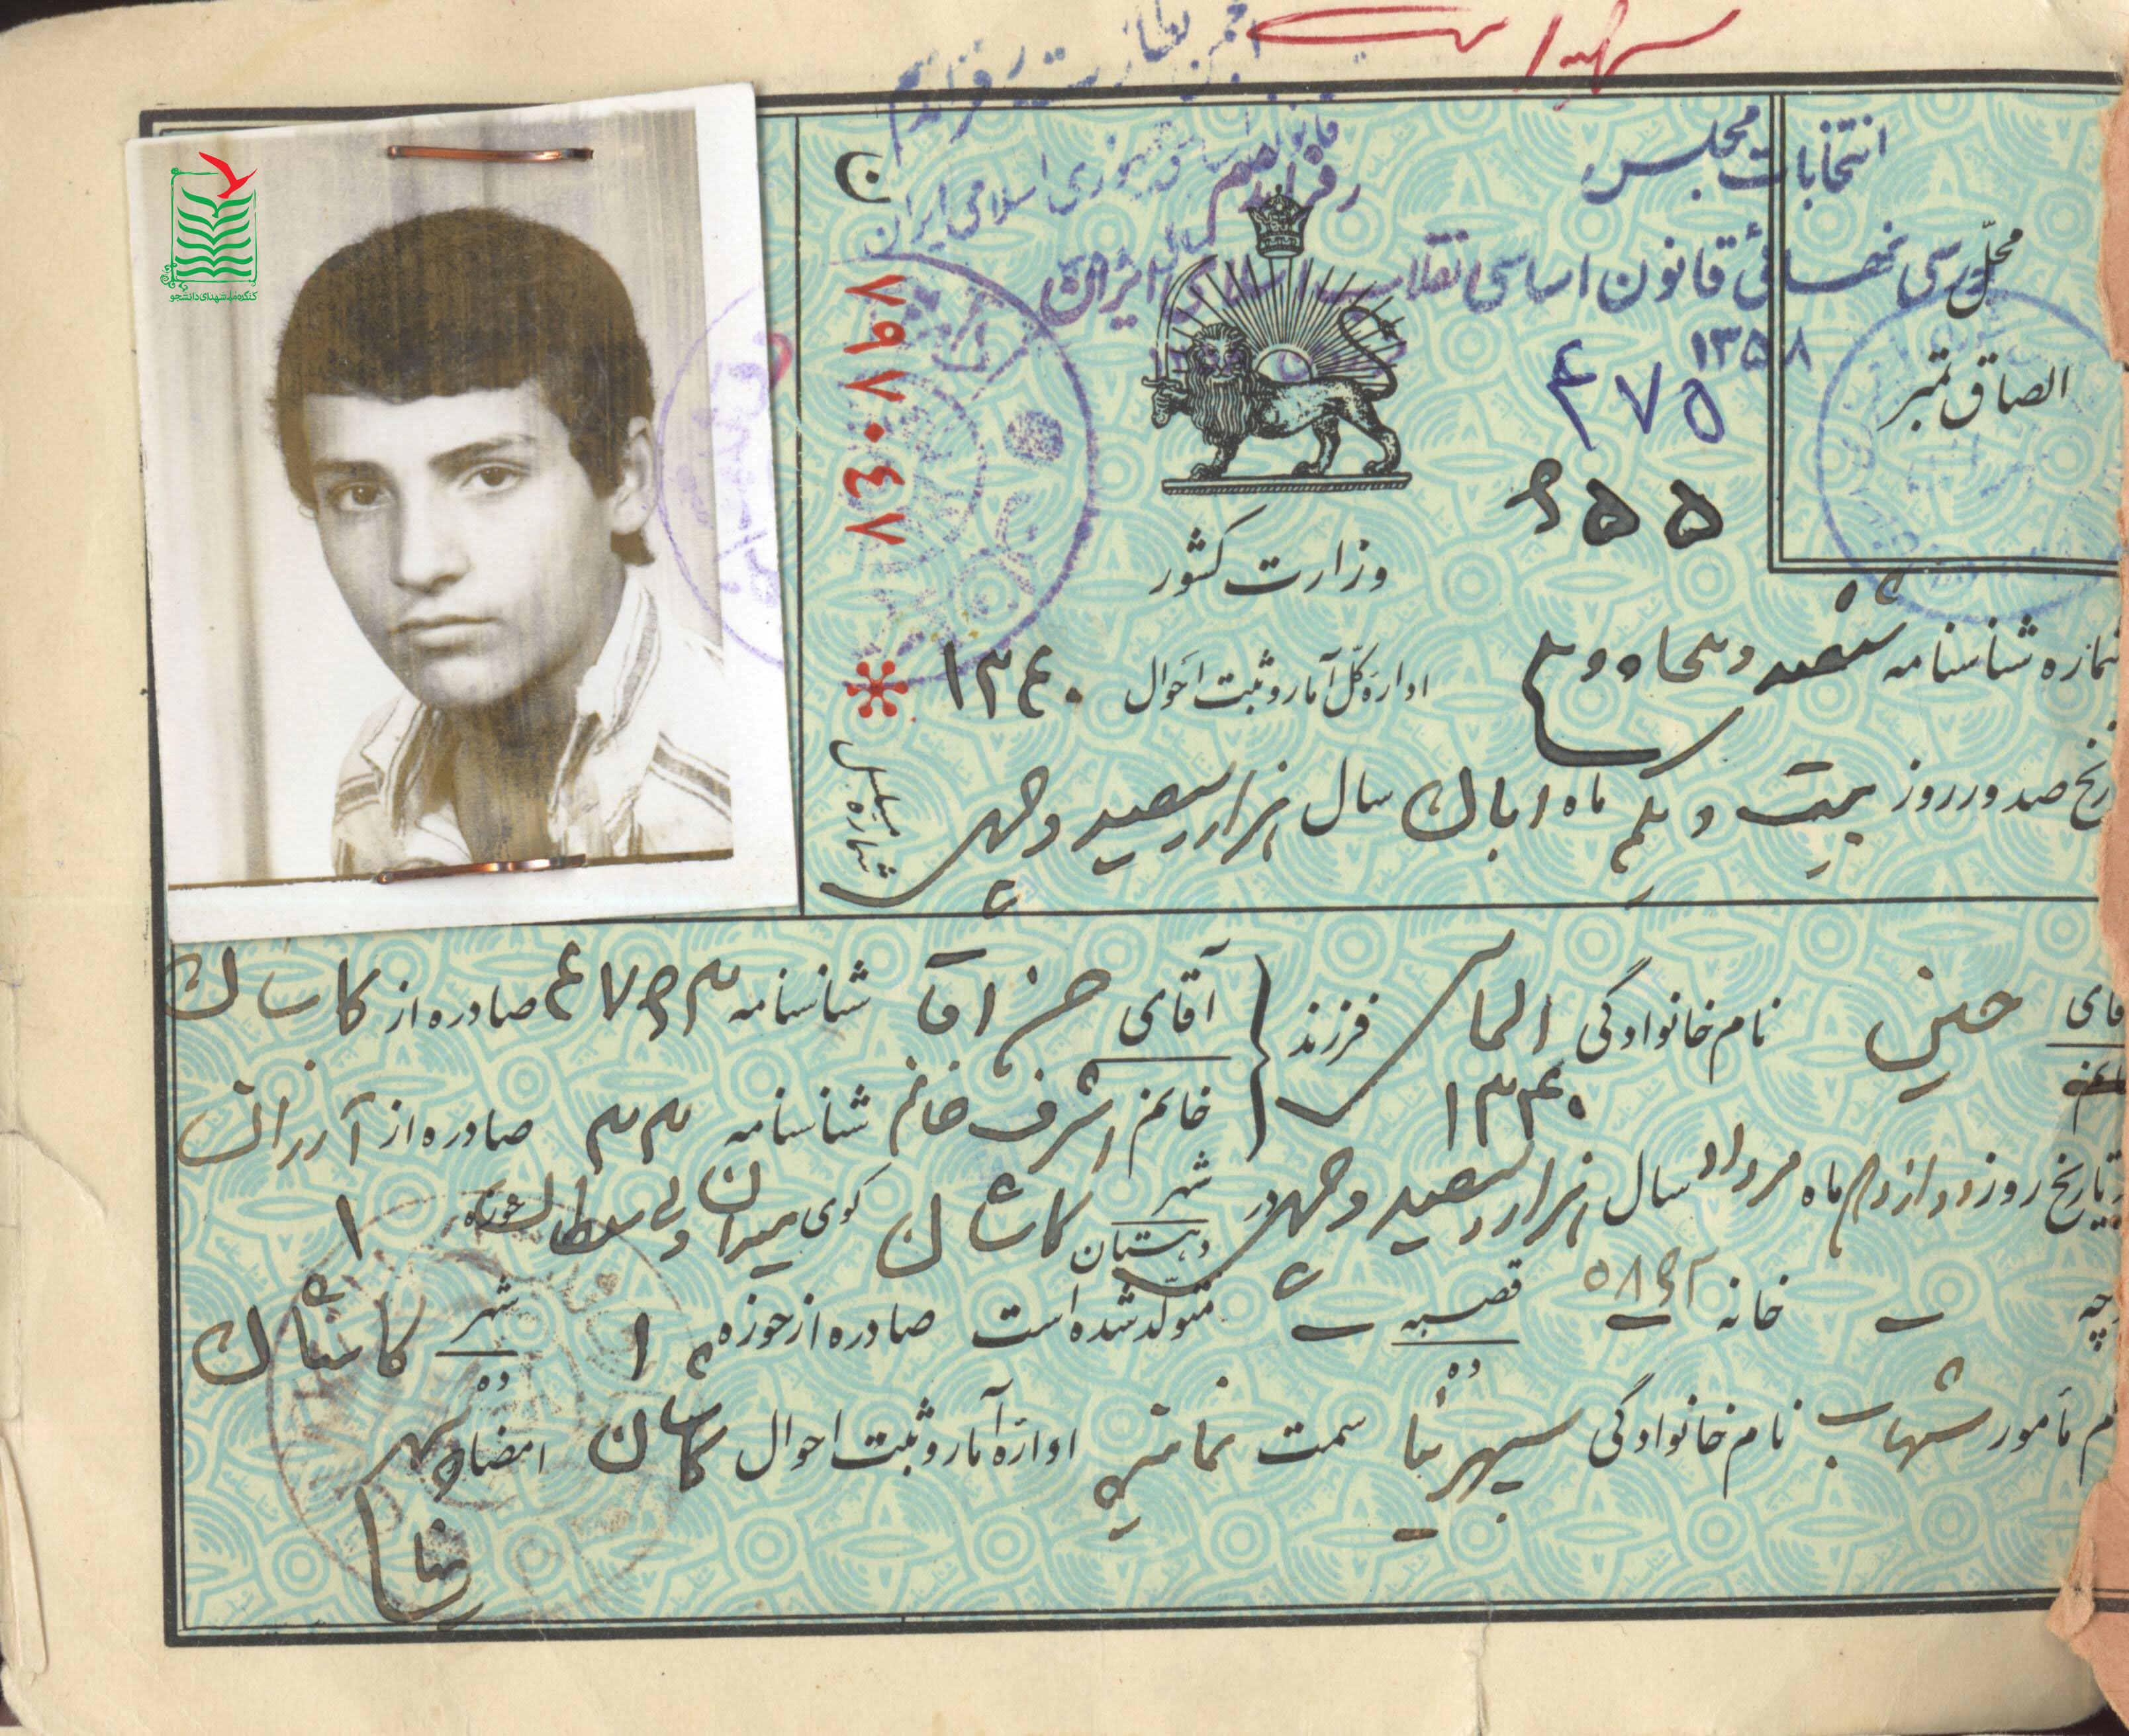 شهید است
انجمن نظارت رفراندم
قانون اساسی جمهوری اسلامی ایران
رفراندم
انتخابات مجلس
بررسی نهائی قانون اساسی انقلاب اسلامی ایران
۱۳۵۸
محلّ
الصاق تمبر
۴۷۵
۶۵۵
ن
۷۹۷۰۴۷
وزارت کشور
شماره شناسنامه ششصد و پنجاه و پنج
اداره کلّ آمار و ثبت احوال ۱۳۴۰
شماره مسلسل
تاریخ صدور روز بیست و یکم ماه ابان سال هزار سیصد و چهل
آقای حسین نام خانوادگی الماسی فرزند
آقای حسن آقا شناسنامه ۴۷۶۳ صادره از کاشان
خانم
خانم اشرف خانم شناسنامه ۳۳ صادره از آرران
۱۳۴۰
بتاریخ روز دوازدهم ماه مرداد سال هزار و سیصد و چهل در شهر کاشان کوی میدان ولی سلطان حوزه ۱
دهستان
خانه ۵۸۶۳ قصبه متولّد شده است صادره از حوزه ۱ شهر کاشان
ده
ده
نام مأمور شهاب نام خانوادگی سپهرنیا سمت نماینده اداره آمار و ثبت احوال کاشان امضاء و مهر
کنگره ملی شهدای دانشجو